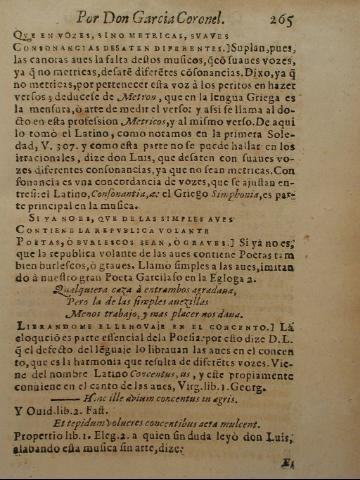 Por Don Garcia Coronel. 265
QVE EN VOZES, SINO METRICAS, SVAVES
CONSONANCIAS DESATEN DIFERENTES.] Suplan, pues,
las canoras aues la falta destos musicos, q̃ cõ suaues vozes,
ya q̃ no metricas, desatẽ diferẽtes cõsonancias. Dixo, ya q̃
no metricas, por pertenecer esta voz à los peritos en hazer
versos y deducese de Metron, que en la lengua Griega es
la mensura, ò arte de medir el verso: y assi se llama al do-
cto en esta profession Metricos, y al mismo verso. De aqui
lo tomò el Latino, como notamos en la primera Sole-
dad, V. 307. y como esta parte no se puede hallar en los
irracionales, dize don Luis, que desaten con suaues vo-
zes diferentes consonancias, ya que no sean metricas. Con
sonancia es vna concordancia de vozes, que se ajustan en-
tresi: el Latino, Consonantia, æ: el Griego Simphonia, es par-
te principal en la musica.
SI YA NO ES, QVE DE LAS SIMPLES AVES
CONTIENE LA REPVBLICA VOLANTE
POETAS, O BVRLESCOS SEAN, ò GRAVES.] Si ya no es,
que la republica volante de las aues contiene Poetas tam
bien burlescos, ò graues. Llamò simples a las aues, imitan
do à nuestro gran Poeta Garcilaso en la Egloga 2.
Qualquiera caza à entrambos agradaua,
Pero la de las simples auezillas
Menos trabajo, y mas placer nos daua.
LIBRANDOME EL LENGVAJE EN EL CONCENTO.] La
eloquciò es parte essencial dela Poesia: por esto dize D. L.
q̃ el defecto del lẽguaje lo librauan las aues en el concen
to, que es la harmonia que resulta de diferẽtes vozes. Vie-
ne del nombre Latino Concentus, us, y este propiamente
conuiene en el canto de las aues, Virg. lib. 1. Georg.
—— Hinc ille auium concentus in agris.
Y Ouid. lib. 2. Fast.
Et tepidum volucres concentibus aera mulcent.
Propertio lib. 1. Eleg. 2. a quien sin duda leyò don Luis,
alabando esta musica sin arte, dize: